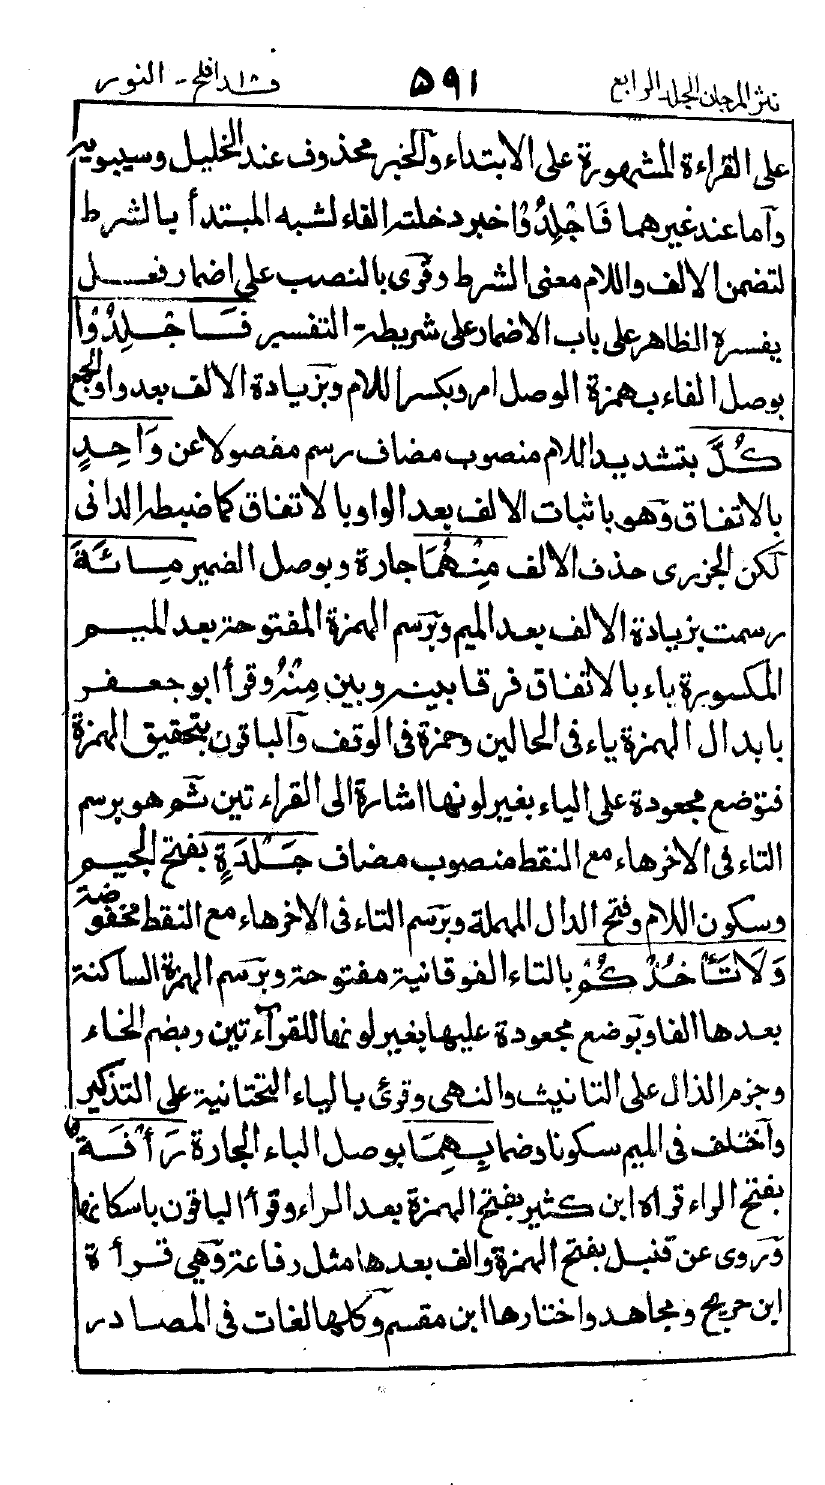 نثر المرجان الجلد الرابع ٥٩١ قد افلح ١٨ - النور
على القراءة المشهورة على الابتداء وآلخبر محذوف عند الخليل وسيبويه
وآما عند غيرهما فَاجْلِدُوْا خبر دخلته الفاء لشبه المبتدأ بالشرط
لتضمن الالف واللام معنى الشرط وقرئ بالنصب على اضمار فعل
يفسره الظاهر على باب الاضمار على شريطة التفسير فَاجْلِدُوْا
بوصل الفاء بهمزة الوصل امر وبكسر اللام وبزيادة الالف بعد واو الجمع
كُلَّ بتشديد اللام منصوب مضاف رسم مفصولا عن وَاحِدٍ
بالاتفاق وهو باثبات الالف بعد الواو بالاتفاق كما ضبطه الدانى
لكن الجزرى حذف الالف مِنْهُمَا جارة وبوصل الضمير مِائَةَ
رسمت بزيادة الالف بعد الميم وبرسم الهمزة المفتوحة بعد الميم
المكسورة ياء بالاتفاق فرقا بينه وبين مِنْهُ وقرأ ابو جعفر
بابدال الهمزة ياء فى الحالين وحمزة فى الوقف وآلباقون بتحقيق الهمزة
فتوضع مجعودة على الياء بغير لونها اشارة الى القراءتين ثم هو برسم
التاء فى الاخر هاء مع النقط منصوب مضاف جَلْدَةٍ بفتح الجيم
وسكون اللام وفتح الدال المهملة وبرسم التاء فى الاخر هاء مع النقط مخفوضة
وَلَا تَأْخُذْكُمْ بالتاء الفوقانية مفتوحة وبرسم الهمزة الساكنة
بعدها الفا وبوضع مجعودة عليها بغير لونها للقرآءتين وبضم الخاء
وجزم الذال على التانيث والنهى وقرئ بالياء التحتانية على التذكير
وآختلف فى الميم سكونا وضما بِهِمَا بوصل الباء الجارة رَأْفَةٌ
بفتح الراء قراه ابن كثير بفتح الهمزة بعد الراء وقرأ الباقون باسكانها
وروى عن قنبل بفتح الهمزة والف بعدها مثل رفاعة وهي قرأة
ابن جريج ومجاهد واختارها ابن مقسم وكلها لغات فى المصادر